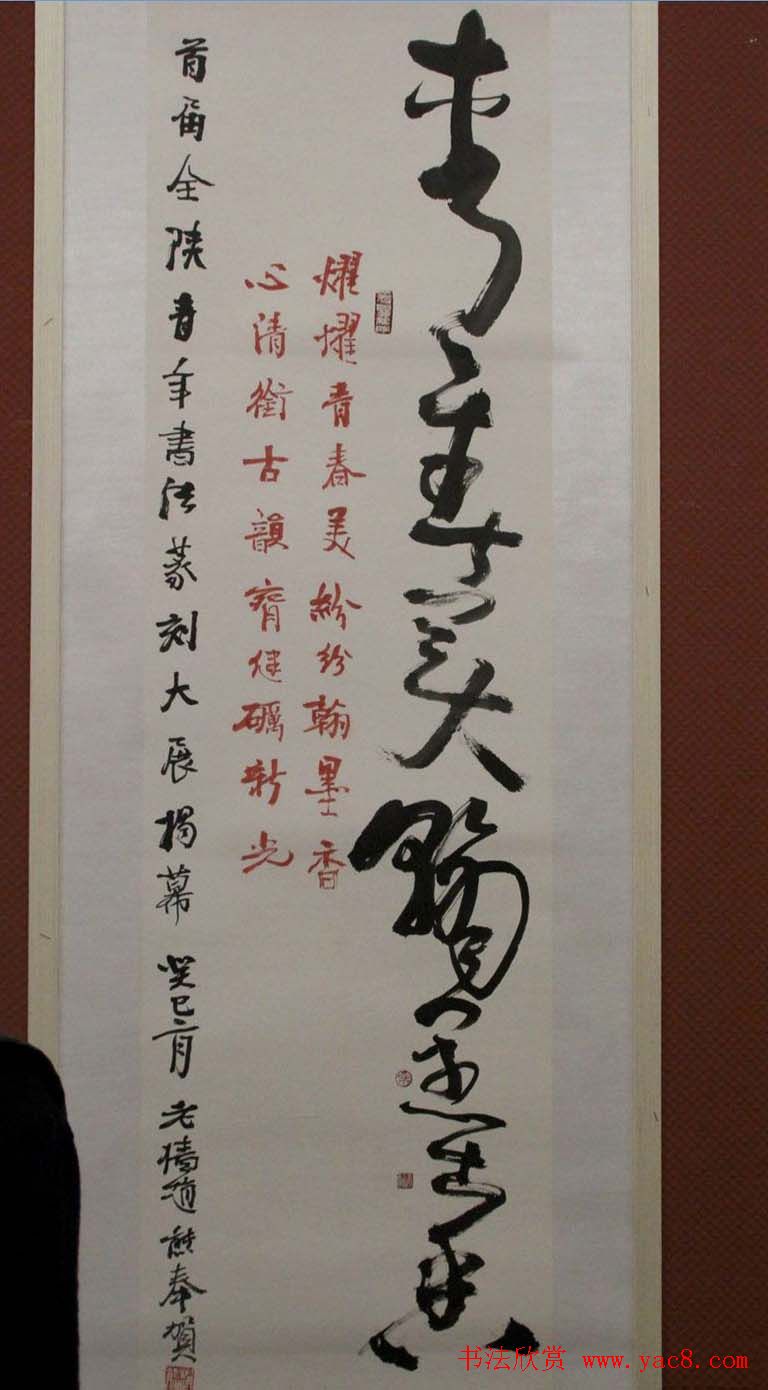 青春美翰墨香
燿燿青春美紛紛翰墨香
心清銜古韻脊健礪新光
首届全陕青年書法篆刻大展揭幕 癸巳二月 老墙 熊奉賀
书法欣赏 www.yac8.com